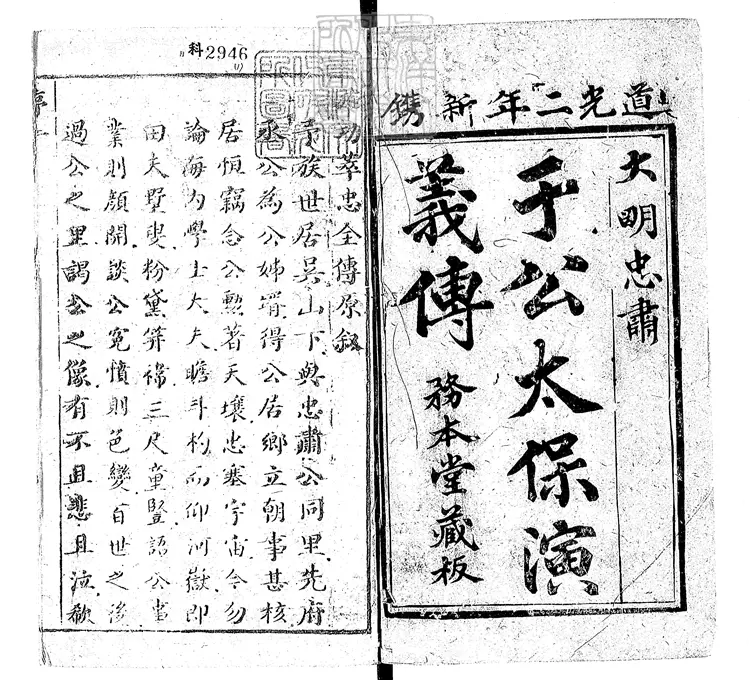 道光二年新鐫
大明忠肅
于公太保演
義傳
務本堂藏板
科2946
功萃忠全傳原叙
予族世居吳山下與忠肅公同里先府
丞公為公姊壻得公居鄉立朝事甚核
居恒竊念公勲著天壤忠塞宇宙今勿
論海内學士大夫瞻斗杓而仰河嶽即
田夫墅叟粉黛筓褘三尺童豎語公
業則顔開談公冤憤則色變百世之後
過公之里謁公之像有不且悲且泣欷